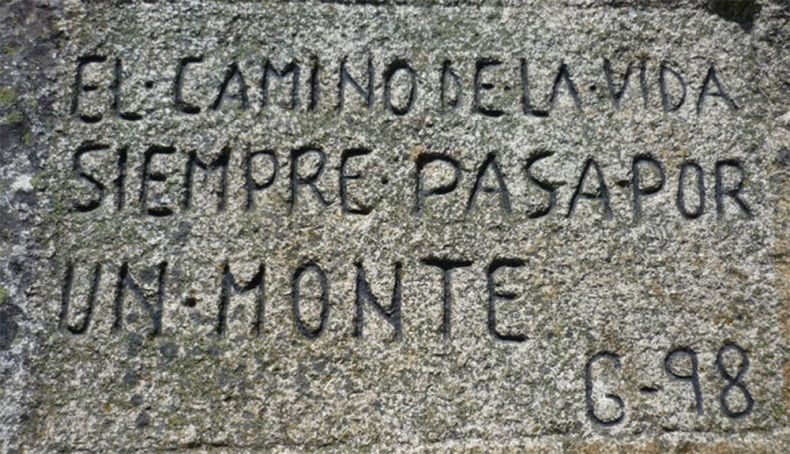 EL·CAMINO DE·LA·VIDA
SIEMPRE·PASA·POR
UN·MONTE
G-98